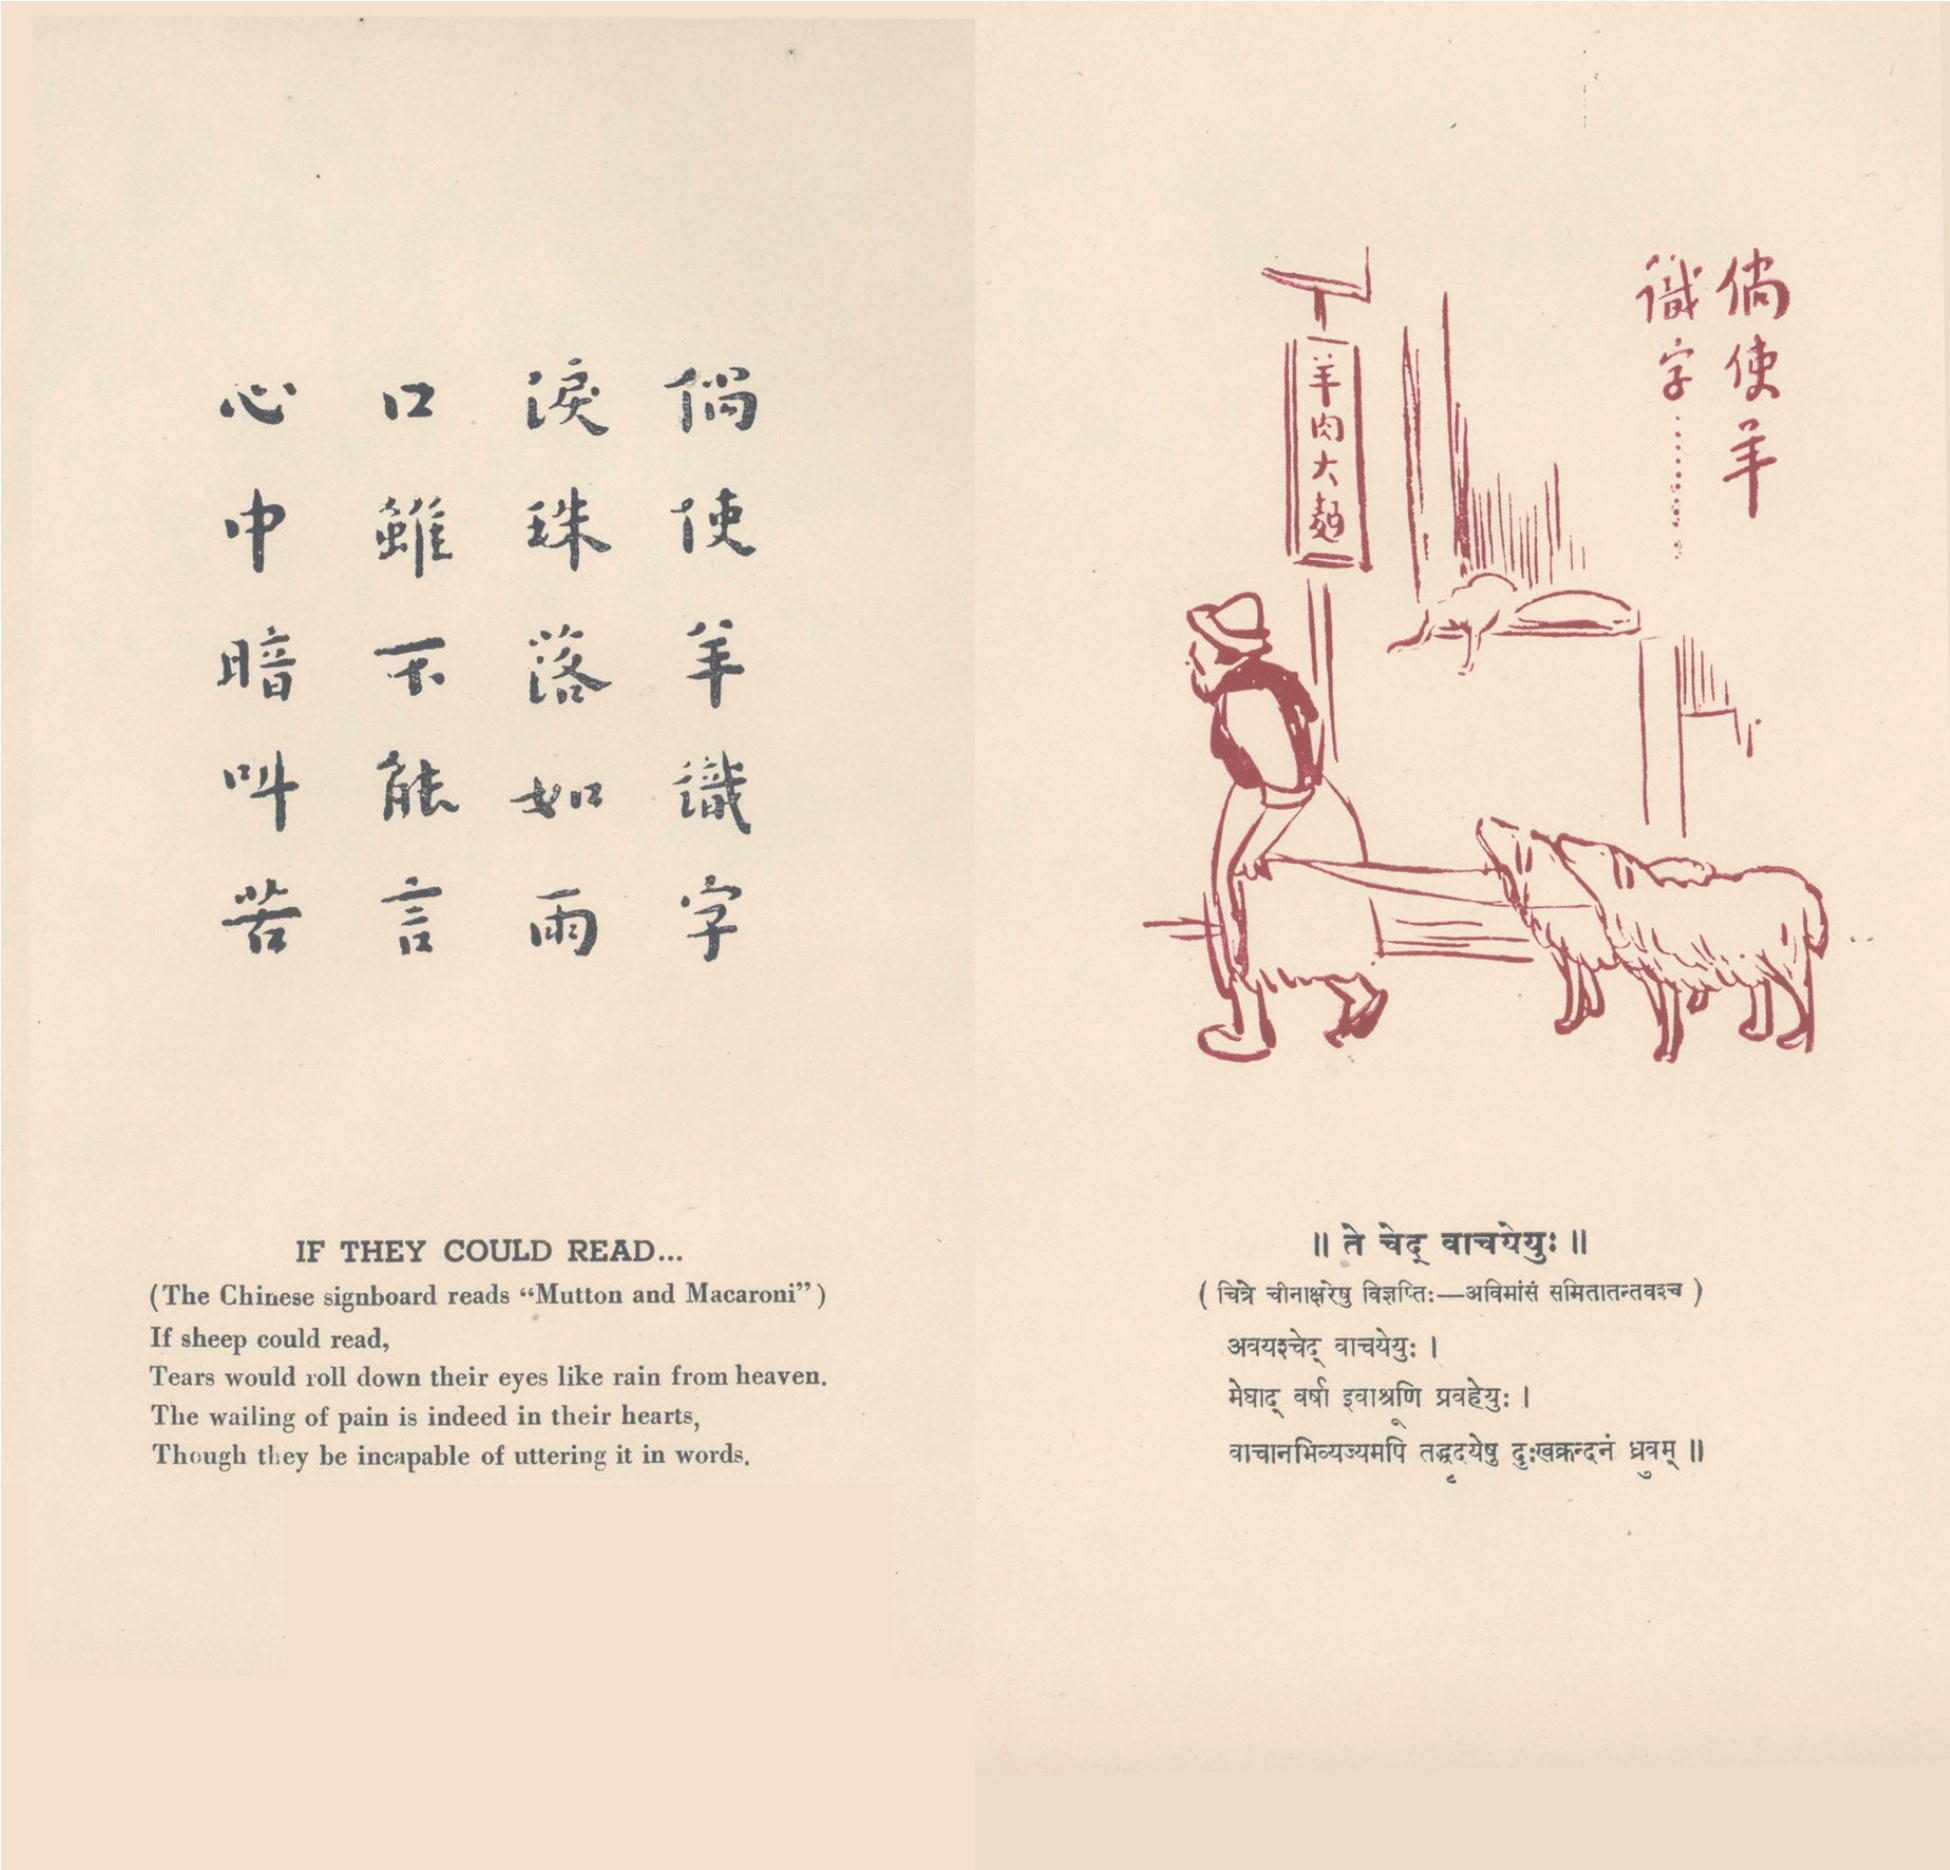 倘使羊識字
淚珠落如雨
口雖不能言
心中暗叫苦
IF THEY COULD READ...
(The Chinese signboard reads “Mutton and Macaroni”)
If sheep could read,
Tears would roll down their eyes like rain from heaven.
The wailing of pain is indeed in their hearts,
Though they be incapable of uttering it in words.
倘使羊
識字……
羊肉大麵
॥ ते चेद् वाचयेयुः ॥
( चित्रे चीनाक्षरेषु विज्ञप्तिः—अविमांसं समितातन्तवश्च )
अवयश्चेद् वाचयेयुः ।
मेघाद् वर्षा इवाश्रूणि प्रवहेयुः ।
वाचानभिव्यज्यमपि तद्धृदयेषु दुःखक्रन्दनं ध्रुवम् ॥